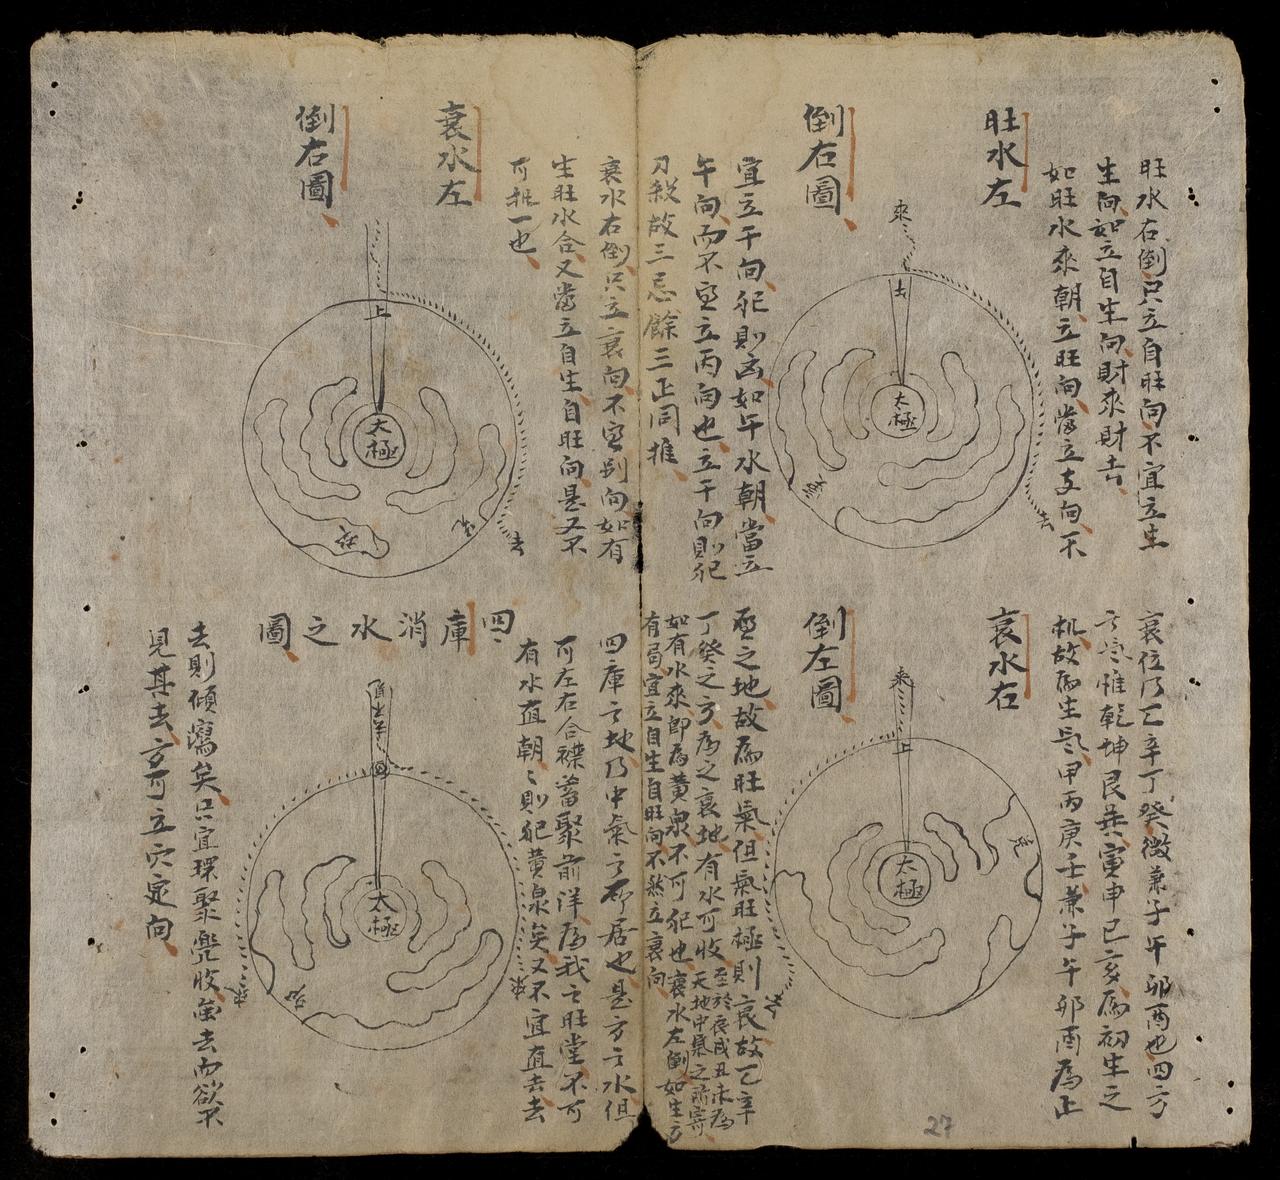 旺水右倒只立自旺向不宜立生
生向如立自生向財來財去
如旺水來朝立旺向當立支向不
旺水左
倒右圖
宜立干向犯則凶如午水朝當立
午向而不宜立丙向也立干向則犯
刀殺故三忌餘三正同推
來
去
太極
去
衰水右倒只立衰向不宜別向如有
生旺水合又當立自生自旺向是又不
可執一也
衰水左
倒右圖
上
太極
去
衰位乃乙辛丁癸微兼子午卯酉也四方
惟乾坤艮巽寅申巳亥為初生之
机故為生氣甲丙庚壬兼子午卯酉為正
衰水右
倒左圖
旺之地故為旺氣但氣旺極則衰故乙辛
丁癸之方為之衰地有水可收至於辰戌丑未為
天地中氣之所寄
如有水來即為黃泉不可犯也衰水左倒如生方
有局宜立自生自旺向不然立衰向
來
上
太極
去
四庫之地乃中氣之所居也是方之水但
可左右合襟蓄聚前洋為我之旺堂不可
有水直朝〻則犯黃泉矣又不宜直去去
四庫消水之圖
太極
來
來
去則傾瀉矣只宜環聚兜收雖去而欲不
見其去方可立穴定向
27